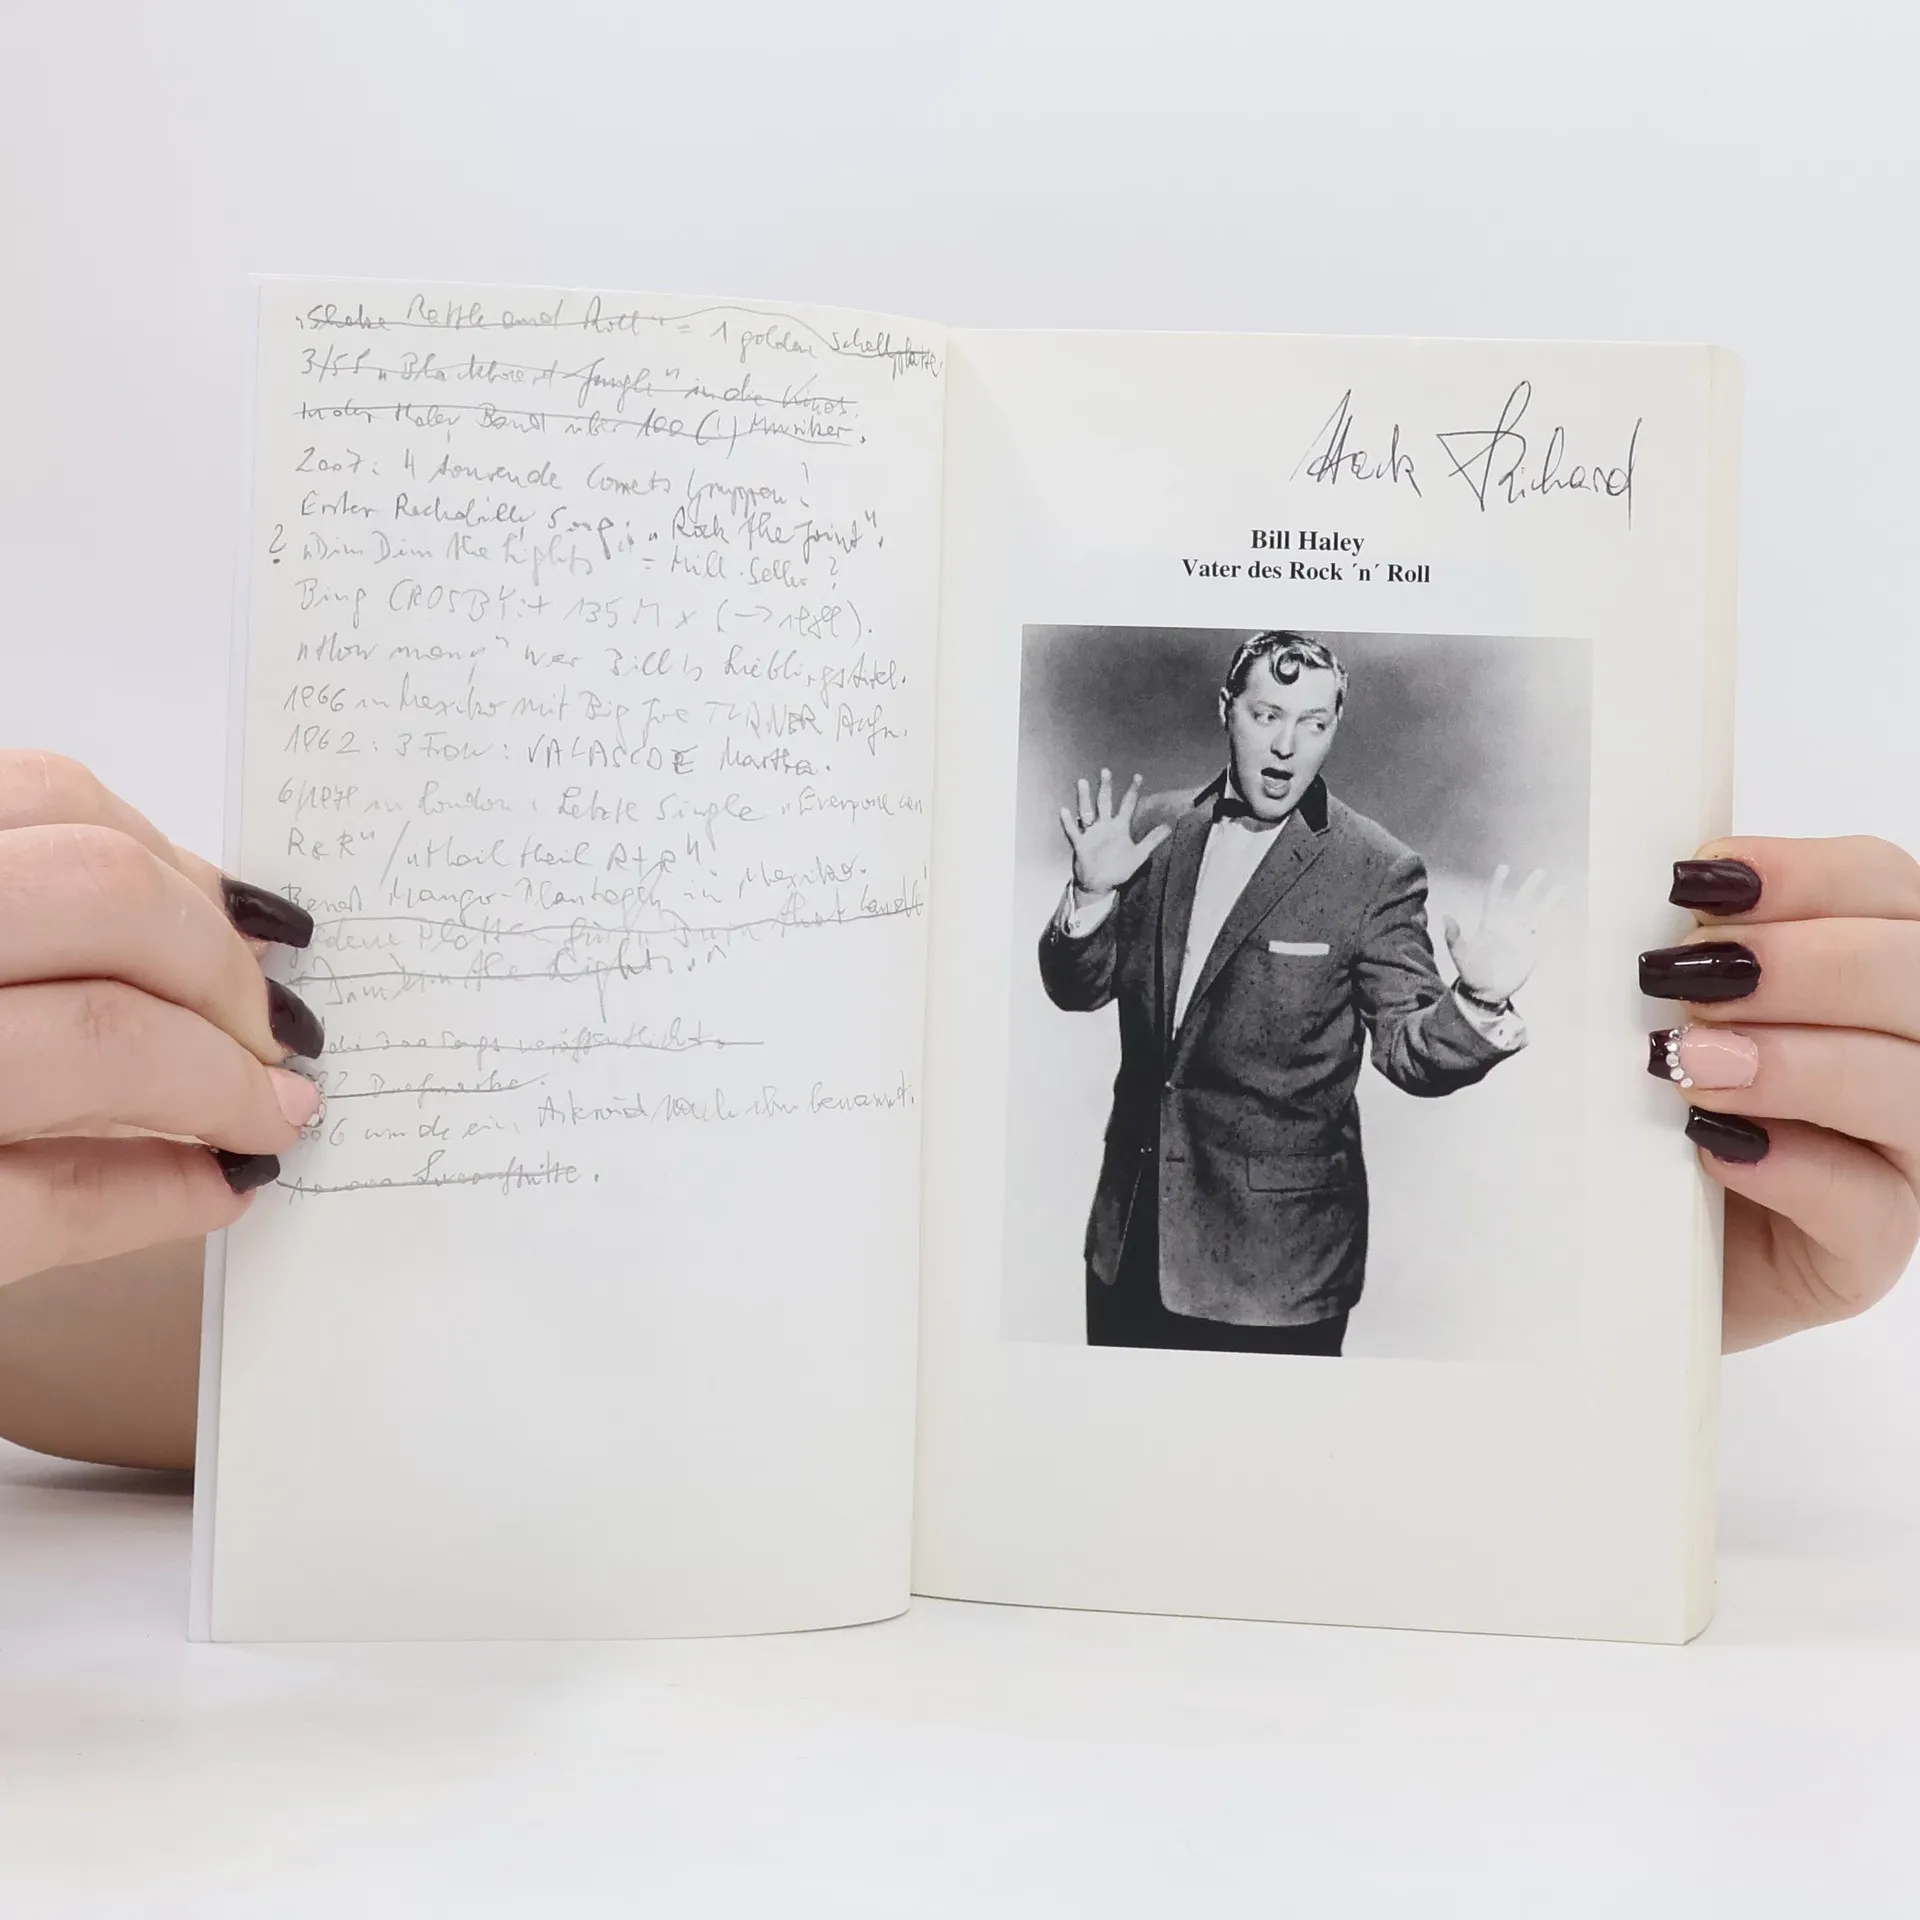 „Shake Rattle and Roll" = 1 goldene Schallplatte.
3/55 „Blackboard Jungle" in die Kinos.
In der Haley Band über 100 (!) Musiker.
2007: 4 tourende Comets Gruppen!
Erster Rockabilly Song: „Rock the Joint".
? „Dim Dim the Lights" = Mill. Seller?
Bing CROSBY: + 135 M x (→ 1988).
„How many" war Bill's Lieblingstitel.
1966 in Mexiko mit Big Joe TURNER Aufn.
1962: 3 Frau: VALASCOE Martha.
6/1979 in London: Letzte Single „Everyone can
R & R" / „Hail Hail R+R"
Mango-Plantagen in Mexiko.
Platten für
Dim the Lights".
300 Songs veröffentlicht.
Briefmarke.
6 wurde ein Asteroid nach ihm benannt.
Hack Richard
Bill Haley
Vater des Rock ´n´ Roll